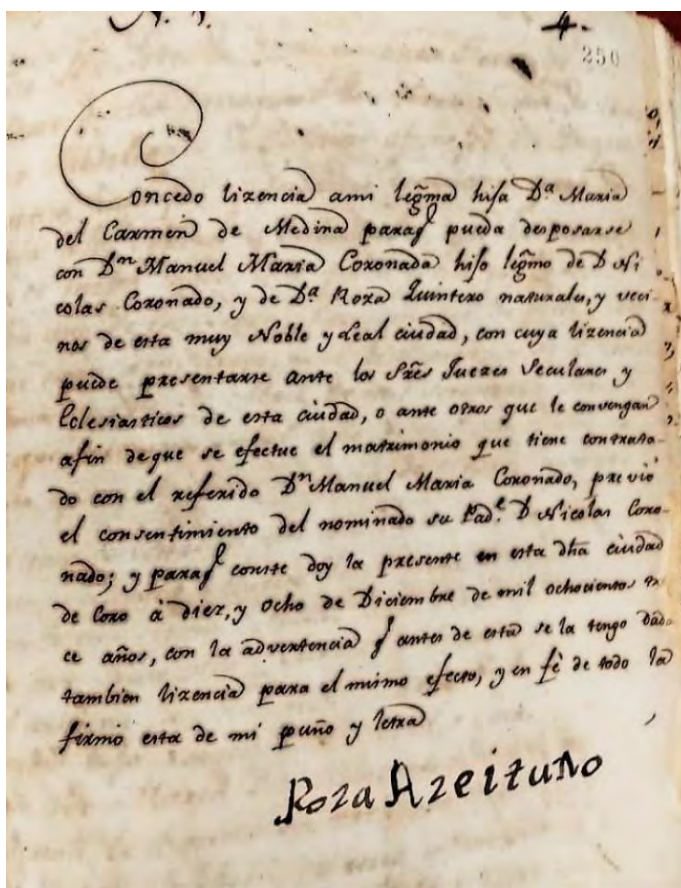 4.
250
Concedo lizencia ami legma hija Da. Maria
del Carmen de Medina paraq pueda desposarse
con Dn. Manuel Maria Coronada hijo legmo de D Ni
colas Coronado, y de Da. Roza Quintero naturales, y veci-
nos de esta muy Noble y Leal ciudad, con cuya lizencia
puede presentarse ante los Sres Juezes Seculares y
Eclesiasticos de esta ciudad, o ante otros que le convengan
afin deque se efectue el matrimonio que tiene contrata-
do con el referido Dn. Manuel Maria Coronado, previo
el consentimiento del nominado su Pade. D Nicolas Coro-
nado; y paraq conste doy la presente en esta dha ciudad
de Coro à diez, y ocho de Diciembre de mil ochocientos tre
ce años, con la advertencia q antes de esta se la tengo dada
tambien lizencia para el mismo efecto, y en fè de todo la
firmo esta de mi puño y letra
Roza Azeituno